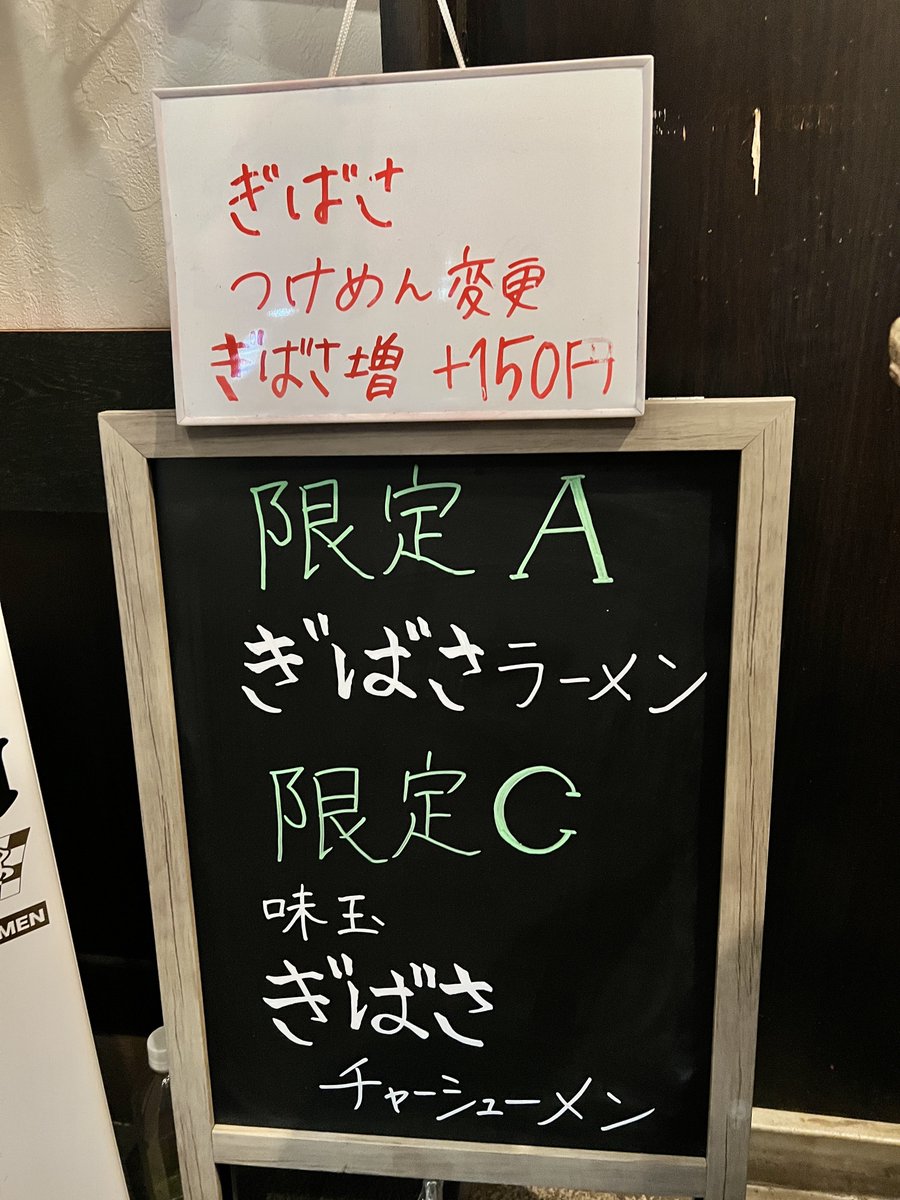 ぎばさ
つけめん変更
ぎばさ増 +150円
限定 A
ぎばさラーメン
限定 C
味玉
ぎばさ
チャーシューメン
MEN